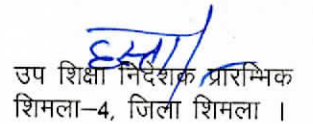 उप शिक्षा निदेशक प्रारम्भिक
शिमला–4, जिला शिमला ।